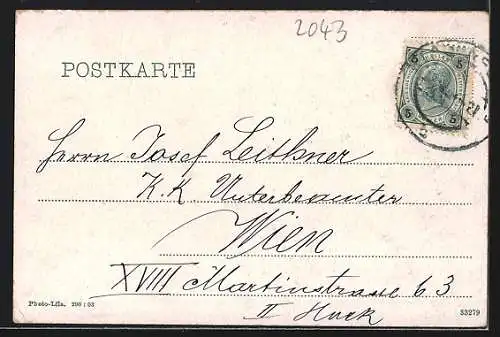 2043
POSTKARTE
5 5
5 5
Herrn Josef Leithner
K.K. Unterbeamter
Wien
XVIII Martinstrasse 63
II Stock
Photo-Lith. 200 | 03
33279